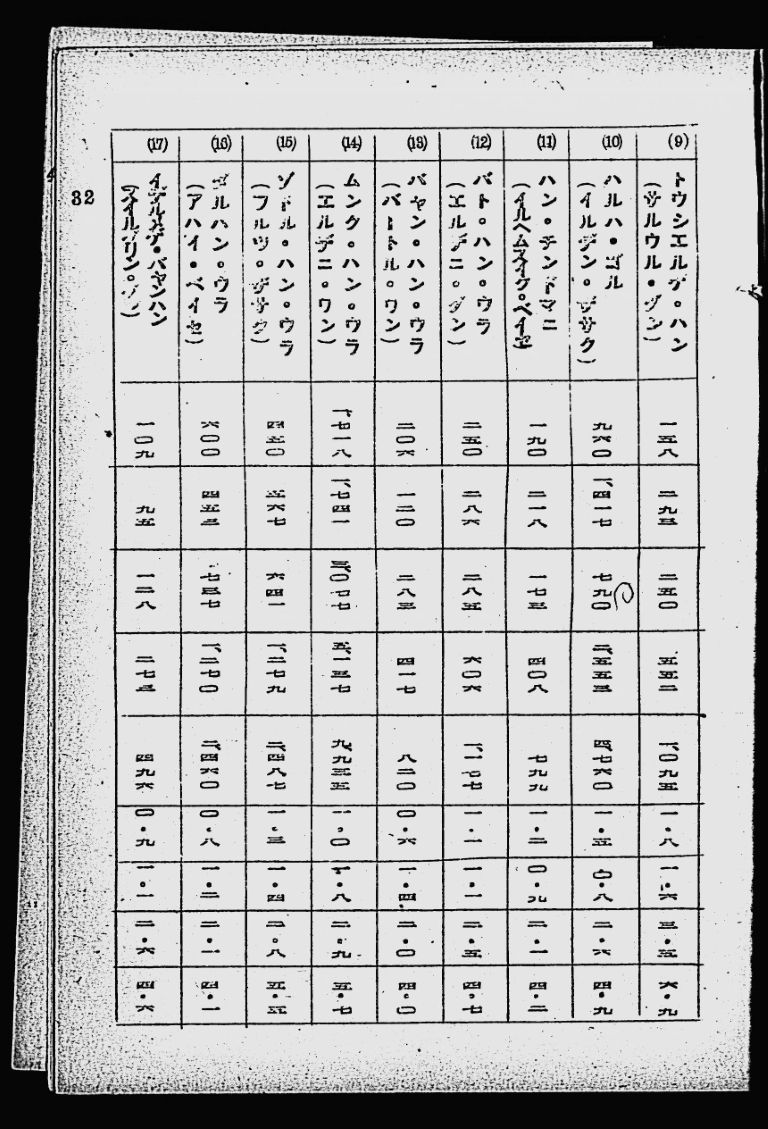 32
(9)
トウシエルゲ・ハン
(サルウル・グン)
一五八
二九三
二五〇
五五二
一、〇九五
一・八
一・六
三・五
六・九
(10)
ハルハ・ゴル
(イルデン・ヂサク)
九六〇
一、四一七
七九〇
二、五五三
四、七六〇
一・五
〇・八
二・六
四・九
(11)
ハン・チンドマニ
(イルヘムスイグ・ベイセ)
一九〇
二一八
一七三
四〇八
七九九
一・二
〇・九
二・一
四・二
(12)
バト・ハン・ウラ
(エルデニ・ダン)
二五〇
二八六
二八五
六〇六
一、一七七
一・一
一・一
二・五
四・七
(13)
バヤン・ハン・ウラ
(バートル・ワン)
二〇六
一二〇
二八三
四一七
八二〇
〇・六
一・四
二・〇
四・〇
(14)
ムンク・ハン・ウラ
(エルデニ・ワン)
一、七一八
一、七四一
三、〇七七
五、一三七
九、九三五
一・〇
一・八
二・九
五・七
(15)
ゾドル・ハン・ウラ
(フルツ・ヂサク)
四五〇
五六七
六四一
一、二七九
二、四八七
一・三
一・四
二・八
五・五
(16)
ダルハン・ウラ
(アハイ・ベイセ)
六〇〇
四五三
七三七
一、二七〇
二、四六〇
〇・八
一・二
二・一
四・一
(17)
バヤンハン
一〇九
九五
一二八
二七三
四九六
〇・九
一・一
二・六
四・六